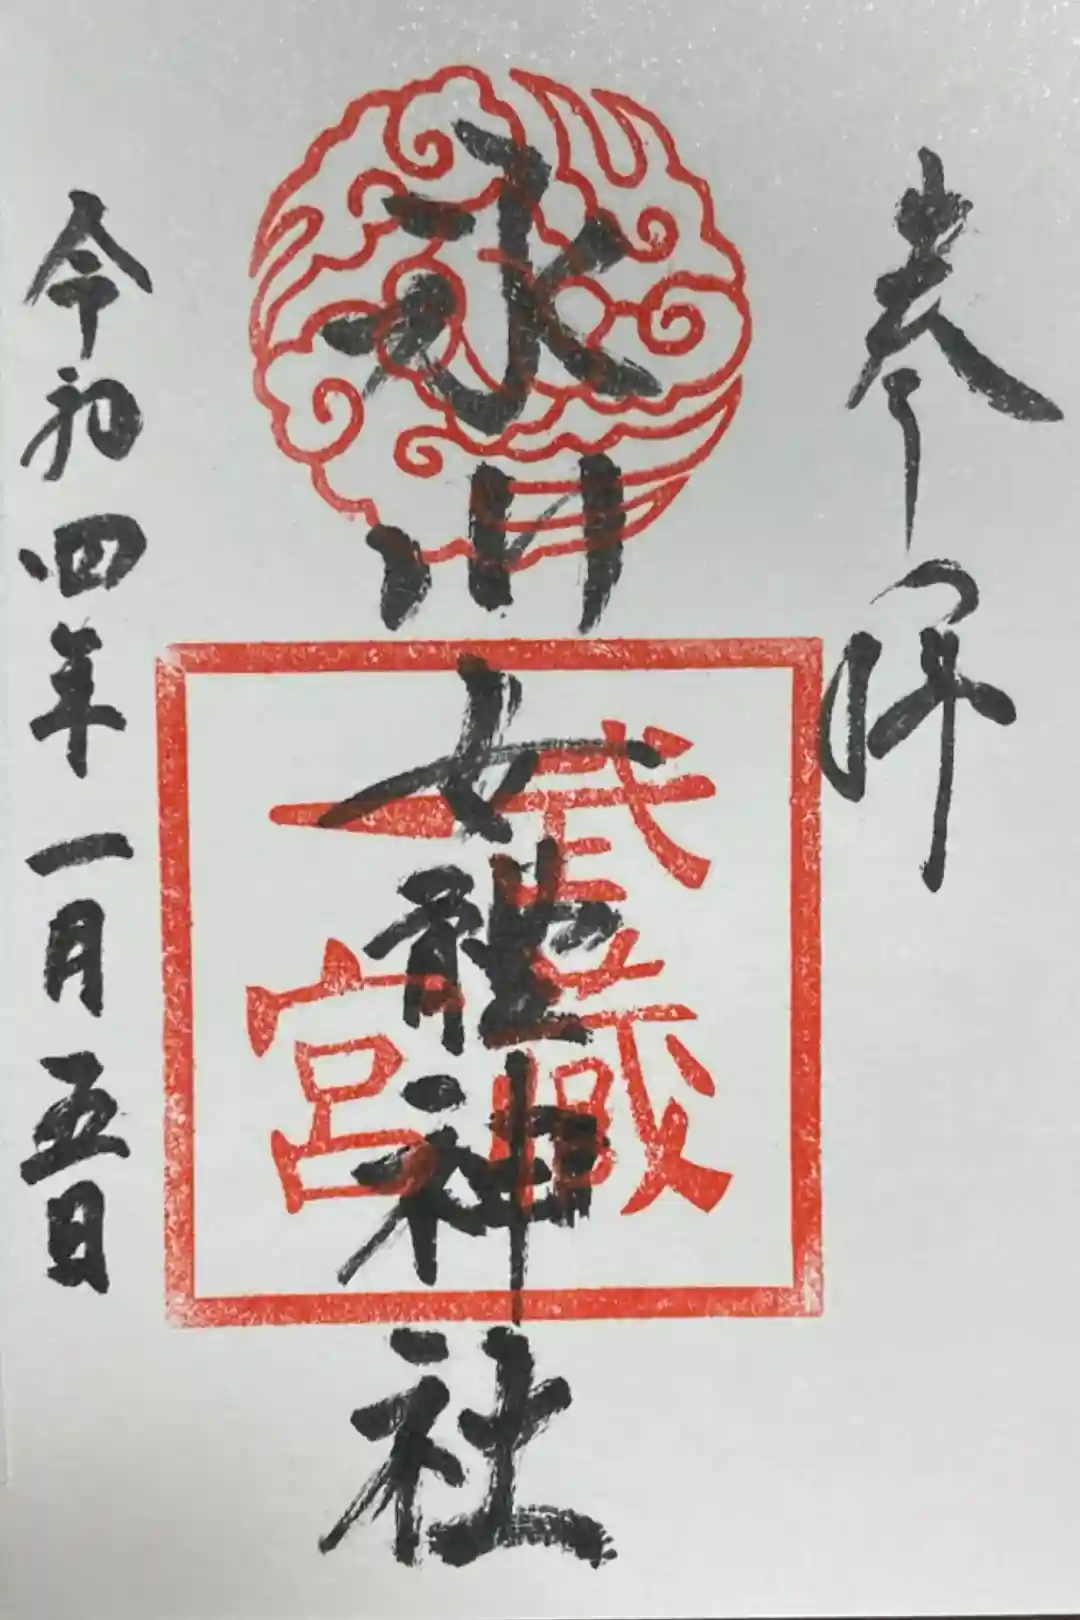 奉拝
氷川女體神社
武蔵
一宮
令和四年一月五日